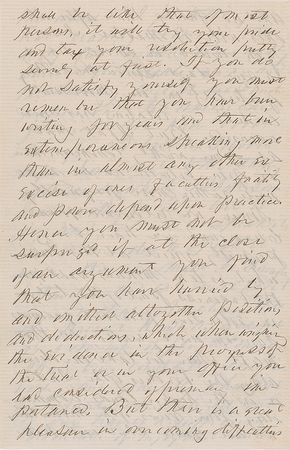 shall be like that of most
persons, it will try your pride
and tax your resolution pretty
severely at first. If you do
not satisfy yourself you must
remember that you have been
writing for years and that in
extemporaneous speaking more
than in almost any other ex-
ercise of ones faculties facility
and power depend upon practice
Hence you must not be
surprized if at the close
of an argument you find
that you have hurried by
and omitted altogether positions
and deductions, which when
the evidence in the progress of
the trial or in your office you
had considered of prime im-
portance. But there is a great
pleasure in overcoming difficulties